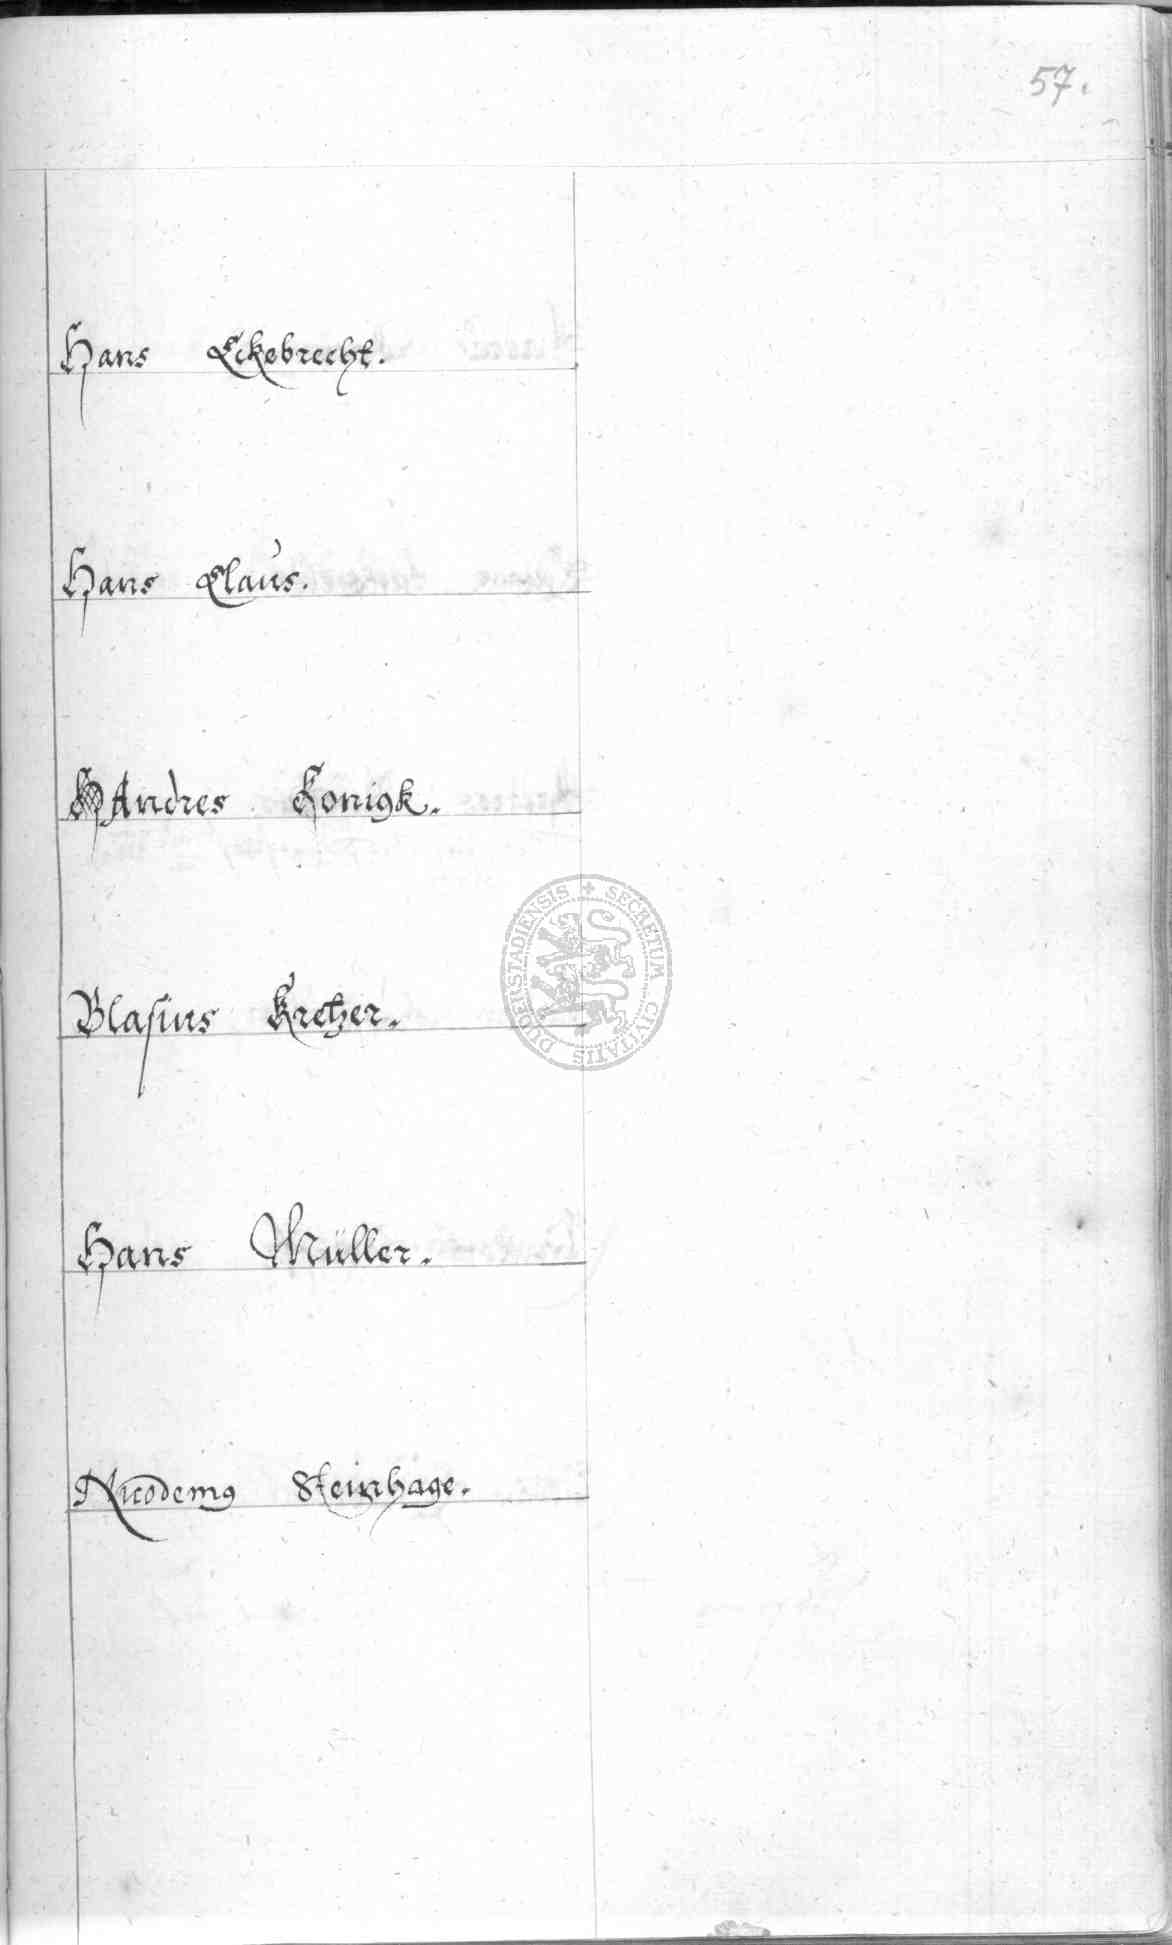 57.
Hans Eckebrecht.
Hans Claus.
Andres Konigk.
Blasius Kretzer.
SECRETUM CIVITATIS DUDERSTADIENSIS
Hans Müller.
Nicodemus Steinhage.